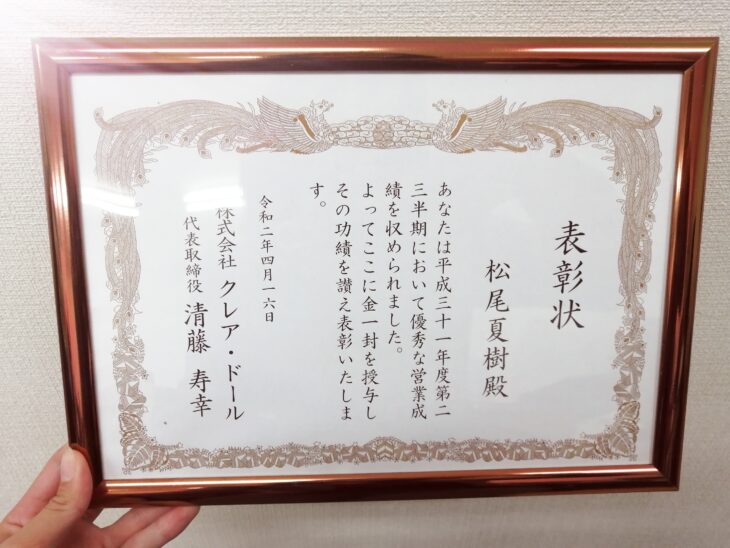 表彰状
松尾夏樹殿
あなたは平成三十一年度第二
三半期において優秀な営業成
績を収められました。
よってここに金一封を授与し
その功績を讃え表彰いたしま
す。
令和二年四月一六日
株式会社 クレア・ドール
代表取締役 清藤 寿幸